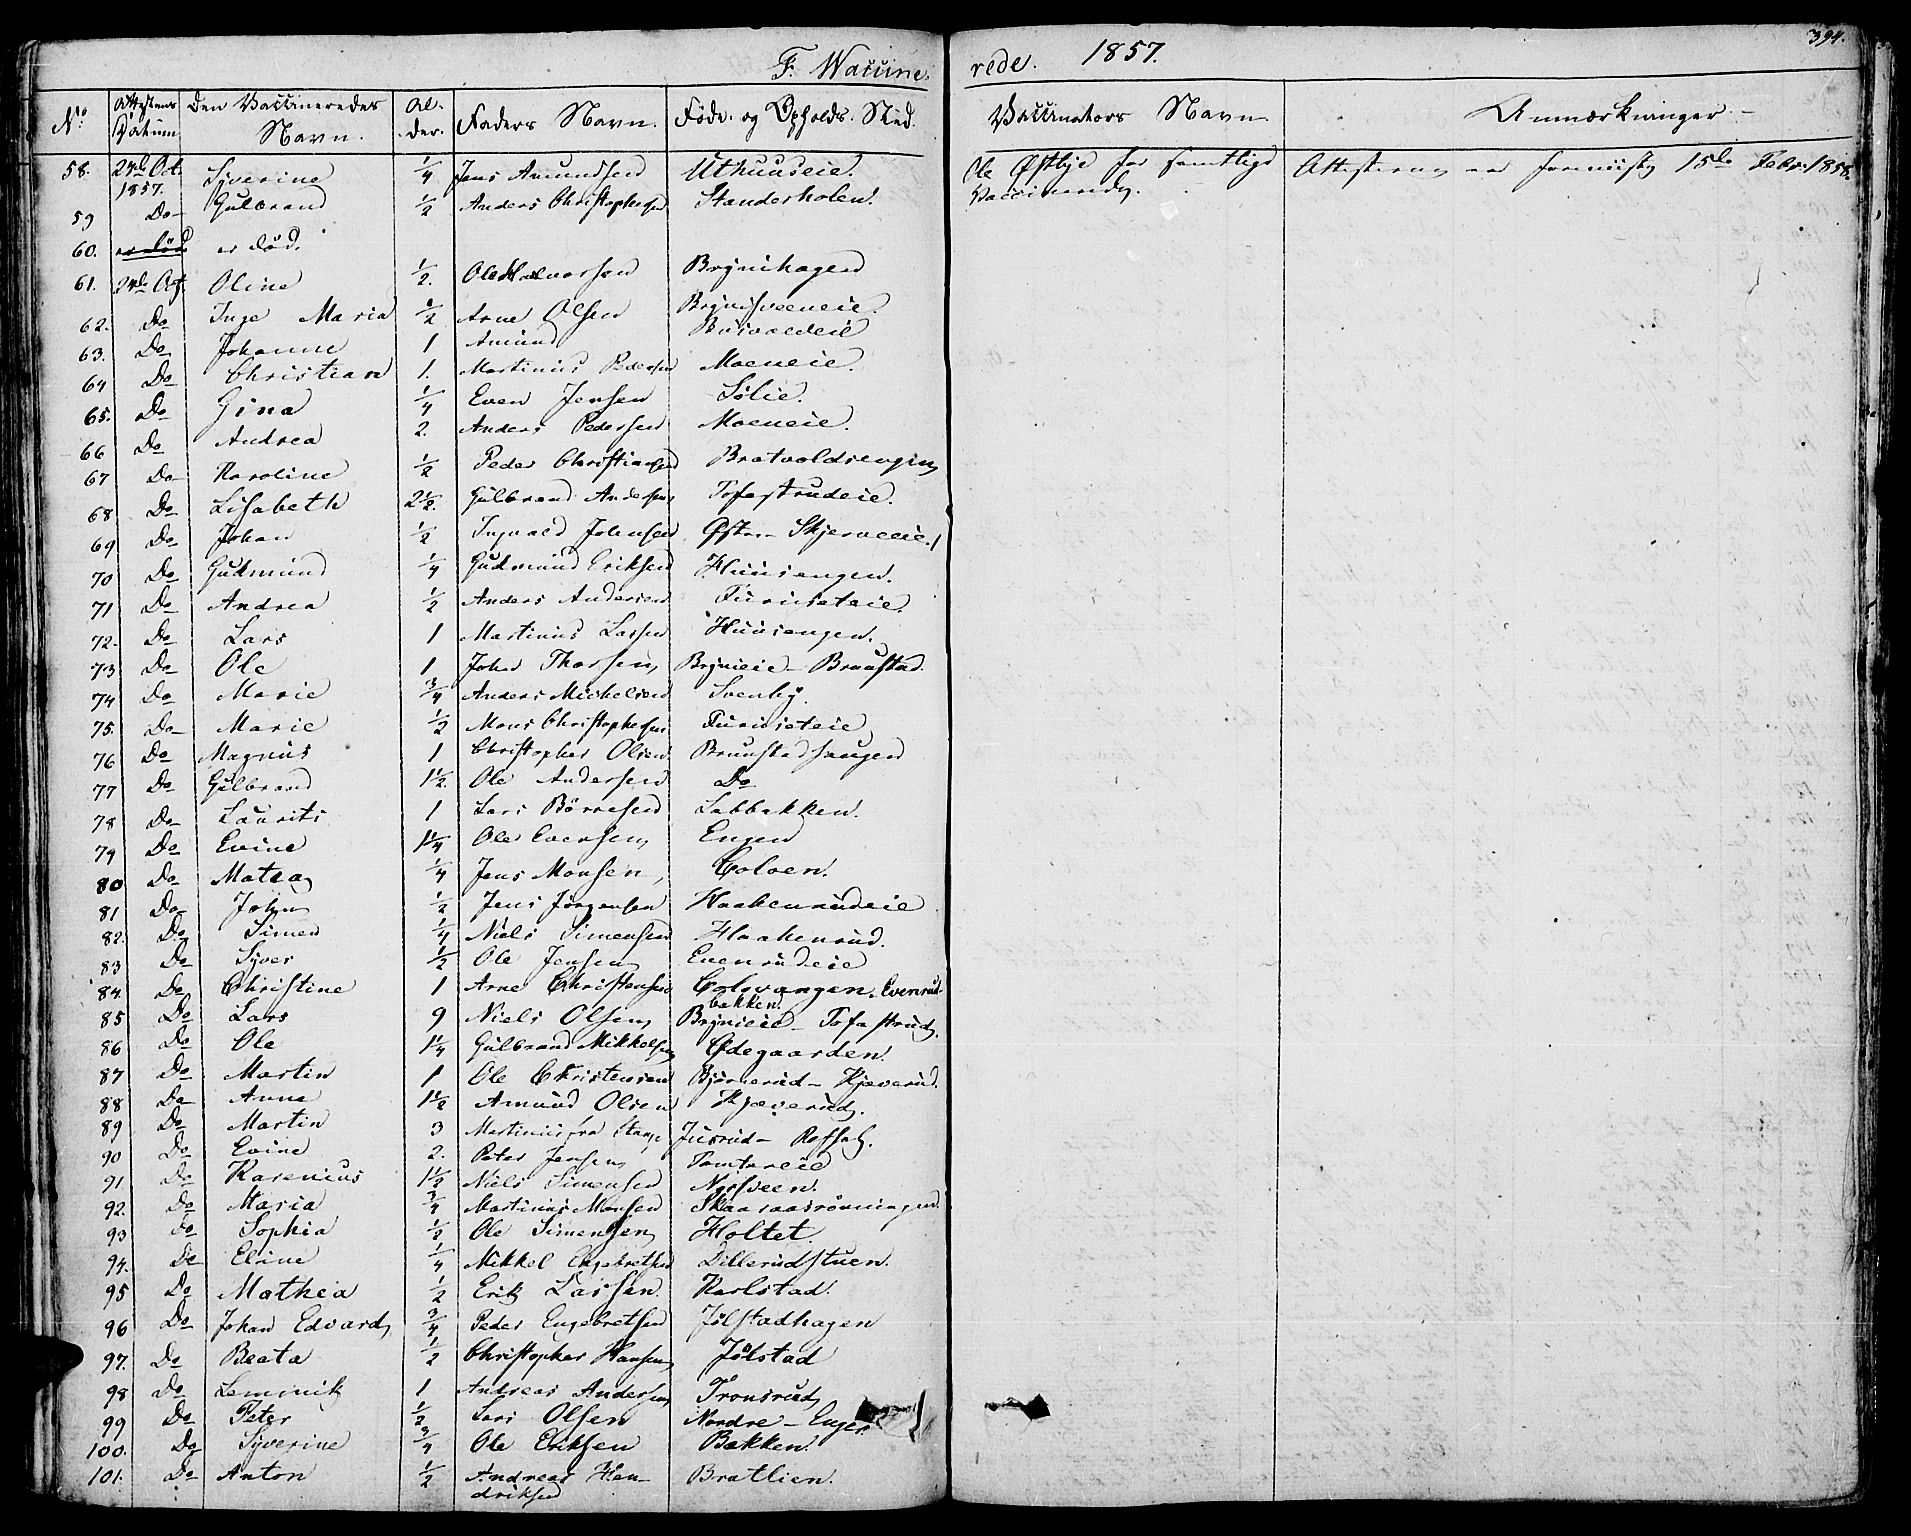 394.
F. Vaccine-rede. 1857.
No. Attestens Datum Den Vaccineredes Navn. Al-der. Faders Navn. Føde- og Opholds-Sted. Vaccinators Navn Anmærkninger
58. 24de Oct. 1857. Syverine 1/4 Jens Amundsen Uthuuseie. Ole Østbye for samtlige Vaccinerede. 15de Febr. 1858.
59 Do Gulbrand 1/2 Anders Christophersen Standerholen.
60. er død er død.
61. 24de Oct. Oline 1/2. Ole Halvorsen Brynihagen
62. Do Inge Maria 1/2 Arne Olsen Brynisveeneie.
63. Do Johanne 1 Amund
64 Do Christian 1. Martinus Pedersen Moeneie.
65. Do Gina 1/4 Even Jensen Sølie.
66 Do Andrea 2. Anders Pedersen Moeneie.
67 Do Karoline 1/2 Peder Christiansen Bratvoldsengen
68 Do Lisabeth 2 1/2. Gulbrand Andersen Tofastrudeie.
69 Do Johan 1/2 Ingvald Johnsen Østre Skjerveeie.
70 Do Gudmund 1/4 Gudmund Eriksen Huusengen.
71 Do Andrea 1/2 Anders Andersen Furuseteie.
72. Do Lars 1 Martinus Larsen Huusengen.
73 Do Ole 1 John Thorsen Brynieie - Bruustad.
74 Do Marie 3/4 Anders Mickelsen Svenby.
75. Do Marie 1/2 Mons Christophersen Furuseteie
76 Do Magnus 1 Christopher Olsen Bruunstadhaugen
77 Do Gulbrand 1 1/2. Ole Andersen Do
78 Do Laurits 1 Lars Børresen Labbakken.
79 Do Evine 1 1/4 Ole Evensen Engen
80 Do Matea 1/4 Jens Monsen, Colven.
81 Do John 1/2 Jens Jørgensen Haakenrudeie
82. Do Simen 1/4 Niels Simensen Haakenrud.
83 Do Syver 1/2 Ole Jensen Evenrudeie
84. Do Christine 1 Arne Christensen Colovangen. Evenrud-bakken.
85 Do Lars 9 Niels Olsen Brynieie - Tofastrud.
86 Do Ole 1 1/4 Gulbrand Mikkelsen Ødegaarden.
87 Do Martin 1 Ole Christensen Bjørnerud - Hjæverud.
88 Do Anne 1 1/2 Amund Olsen Hjæverud.
89 Do Martin 3 Martinus fra Stange Juusrud -
90 Do Evine 2. Peter Jensen Tomtereie
91. Do Karenius 1 1/2 Niels Simensen Nysveen.
92. Do Maria 3/4 Martinus Monsen Skaaraasrønningen
93 Do Sophia 1/2 Ole Simensen Holtet.
94. Do Eline 1/4 Mikkel Engebretsen Dillerudstuen.
95 Do Mathea 1/2 Erik Larssen. Karlstad.
96 Do Johan Edvard 3/4 Peder Engebretsen Jølstadhagen
97. Do Beata 1/2 Christopher Hansen Jølstad
98 Do Leminik 1 Andreas Andersen Tronsrud
99 Do Peter 1/2 Lars Olsen Nordre - Enger.
100. Do Syverine 3/4 Ole Eriksen Bakken.
101. Do Anton 1/2 Andreas Hen-driksen Bratlien.